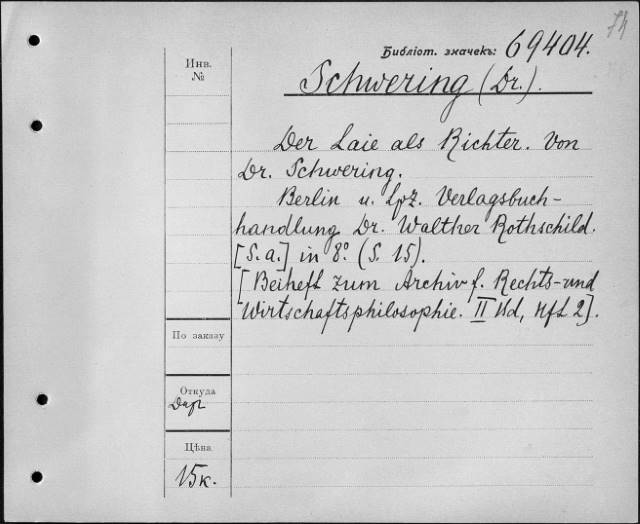 74
Библіот. значекъ: 69404.
Инв.
№
Schwering (Dr.).
Der Laie als Richter. Von
Dr. Schwering.
Berlin u. Lpz. Verlagsbuch-
handlung Dr. Walther Rothschild.
[S. a.] in 8º. (S. 15).
[Beiheft zum Archiv f. Rechts- und
Wirtschaftsphilosophie. II Bd, Hft 2].
По заказу
Откуда
Дар
Цѣна
15 к.